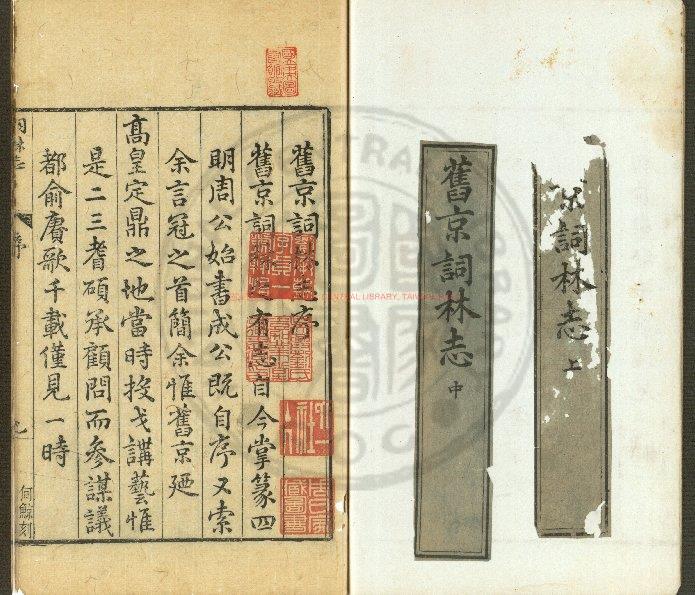 詞林志
上
舊京詞林志
中
舊京詞林志序
舊京詞林有志自今掌篆四
明周公始書成公既自序又索
余言冠之首簡余惟舊京廼
高皇定鼎之地當時投戈講藝惟
是二三耆碩承顧問而參謀議
都俞賡歌千載僅見一時
詞林志
序
何鯨刻
CENTRAL LIBRARY, TAIWAN